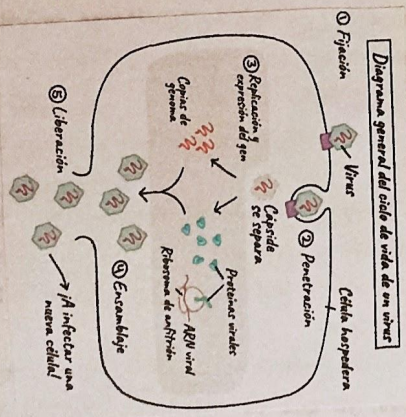 Diagrama general del ciclo de vida de un virus
① Fijación
Virus
Célula hospedera
② Penetración
Cápside
se separa
③ Replicación y
expresión del gen
Copias de
genoma
Proteínas virales
ARN viral
Ribosoma de anfitrión
④ Ensamblaje
⑤ Liberación
¡A infectar una
nueva célula!